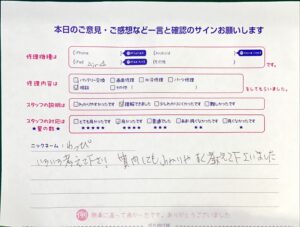 本日のご意見・ご感想など一言と確認のサインお願いします
修理機種は
iPhone
Android
iPad
その他
です。
修理内容は
バッテリー交換
画面修理
水没修理
パーツ修理
相談
その他
をしてもらいました。
スタッフの説明は
わかりやすかったです
理解できました
少しわかりにくかったです
難しかったです
スタッフの対応は
★星の数★
とても良かったです
良かったです
普通でした
あまり良くなかったです
良くなかったです
★★★★★
★★★★
★★★
★★
★
ニックネーム:
いろいろ考えて下さり、質問してもわかりやすく教えて下さいました
修理に迷って良かったです。ありがとうございました